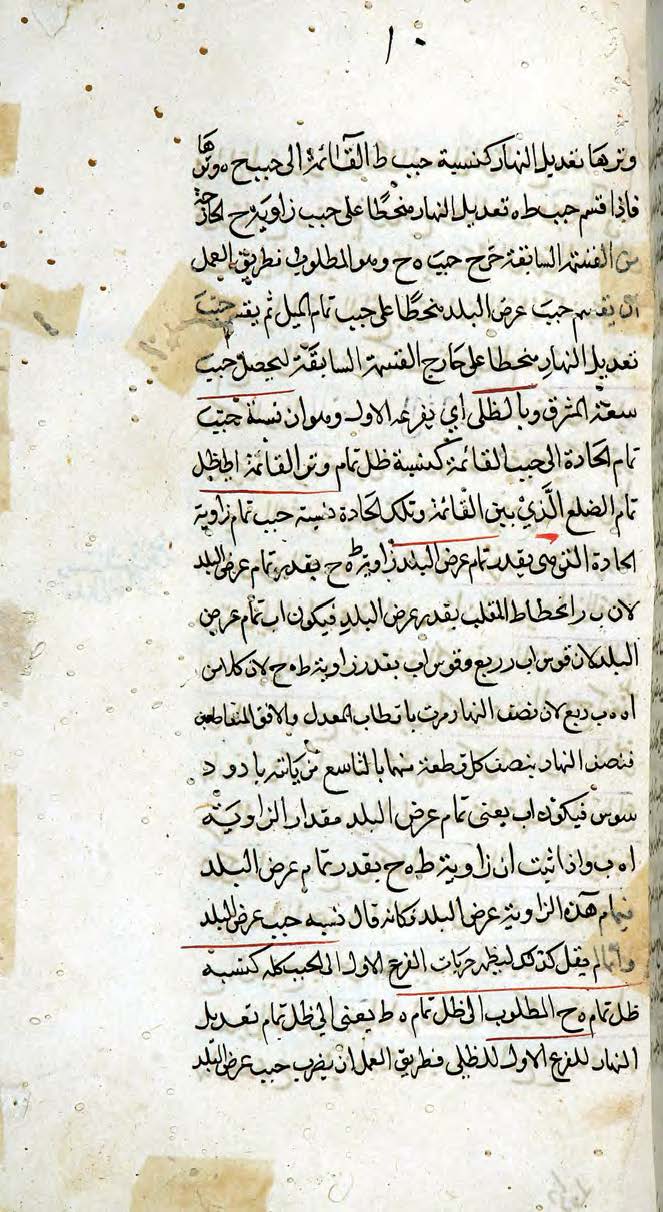 ١٠
وترها تعديل النهار كنسبة جيب ط القائمة الى جيب ح ه وترها
فاذا قسم جيب ط ه تعديل النهار منحطا على جيب زاوية ح الخارجة
من القسمة السابقة خرج جيب ه ح وهو المطلوب فطريق العمل
ان يقسم جيب عرض البلد منحطا على جيب تمام الميل ثم يقسم جيب
تعديل النهار منحطا على خارج القسمة السابقة ليحصل جيب
سعة المشرق وبالظلى اي بفرعه الاول وهو ان نسبة جيب
تمام الحادة الى جيب القائمة كنسبة ظل تمام وتر القائمة الى ظل
تمام الضلع الذي بين القائمة وتلك الحادة نسبة جيب تمام زاوية
الحادة التى هى بقدر تمام عرض البلد زاوية ط ه ح بقدر تمام عرض البلد
لان ب ر انحطاط القطب بقدر عرض البلد فيكون اب تمام عرض
البلد لان قوس اب ر ربع وقوس اب بقدر زاوية ط ه ح لان كلا من
ا ه ه ب ربع لان نصف النهار مرت باقطاب المعدل والافق المتقاطعين
فنصف النهار ينصف كل قطعة منهما بالتاسع من ثانية با دو د
سوس فيكون اب يعنى تمام عرض البلد مقدار الزاوية
ا ه ب واذا ثبت ان زاوية ط ه ح بقدر تمام عرض البلد
فتمام هذه الزاوية عرض البلد فكانه قال نسبة جيب عرض البلد
وانما لم يقل كذلك ليظهر جريان الفرع الاول الى الجيب كله كنسبة
ظل تمام ه ح المطلوب الى ظل تمام ه ط يعنى الى ظل تمام تعديل
النهار للفرع الاول للظلى فطريق العمل ان يضرب جيب عرض البلد